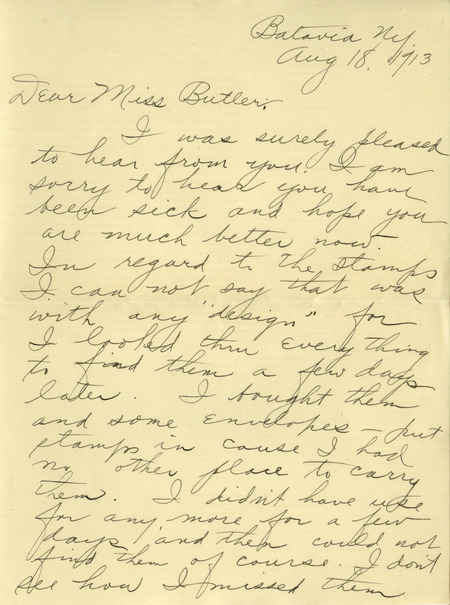 Batavia Ny.
Aug 18. 1913
Dear Miss Butler:
I was surely pleased
to hear from you. I am
sorry to hear you have
been sick and hope you
are much better now.
In regard to the stamps
I can not say that was
with any "design" for
I looked thru everything
to find them a few days
later. I bought them
and some envelopes - put
stamps in cause I had
no other place to carry
them. I didn't have use
for any more for a few
days and then could not
find them of course. I don't
see how I missed them